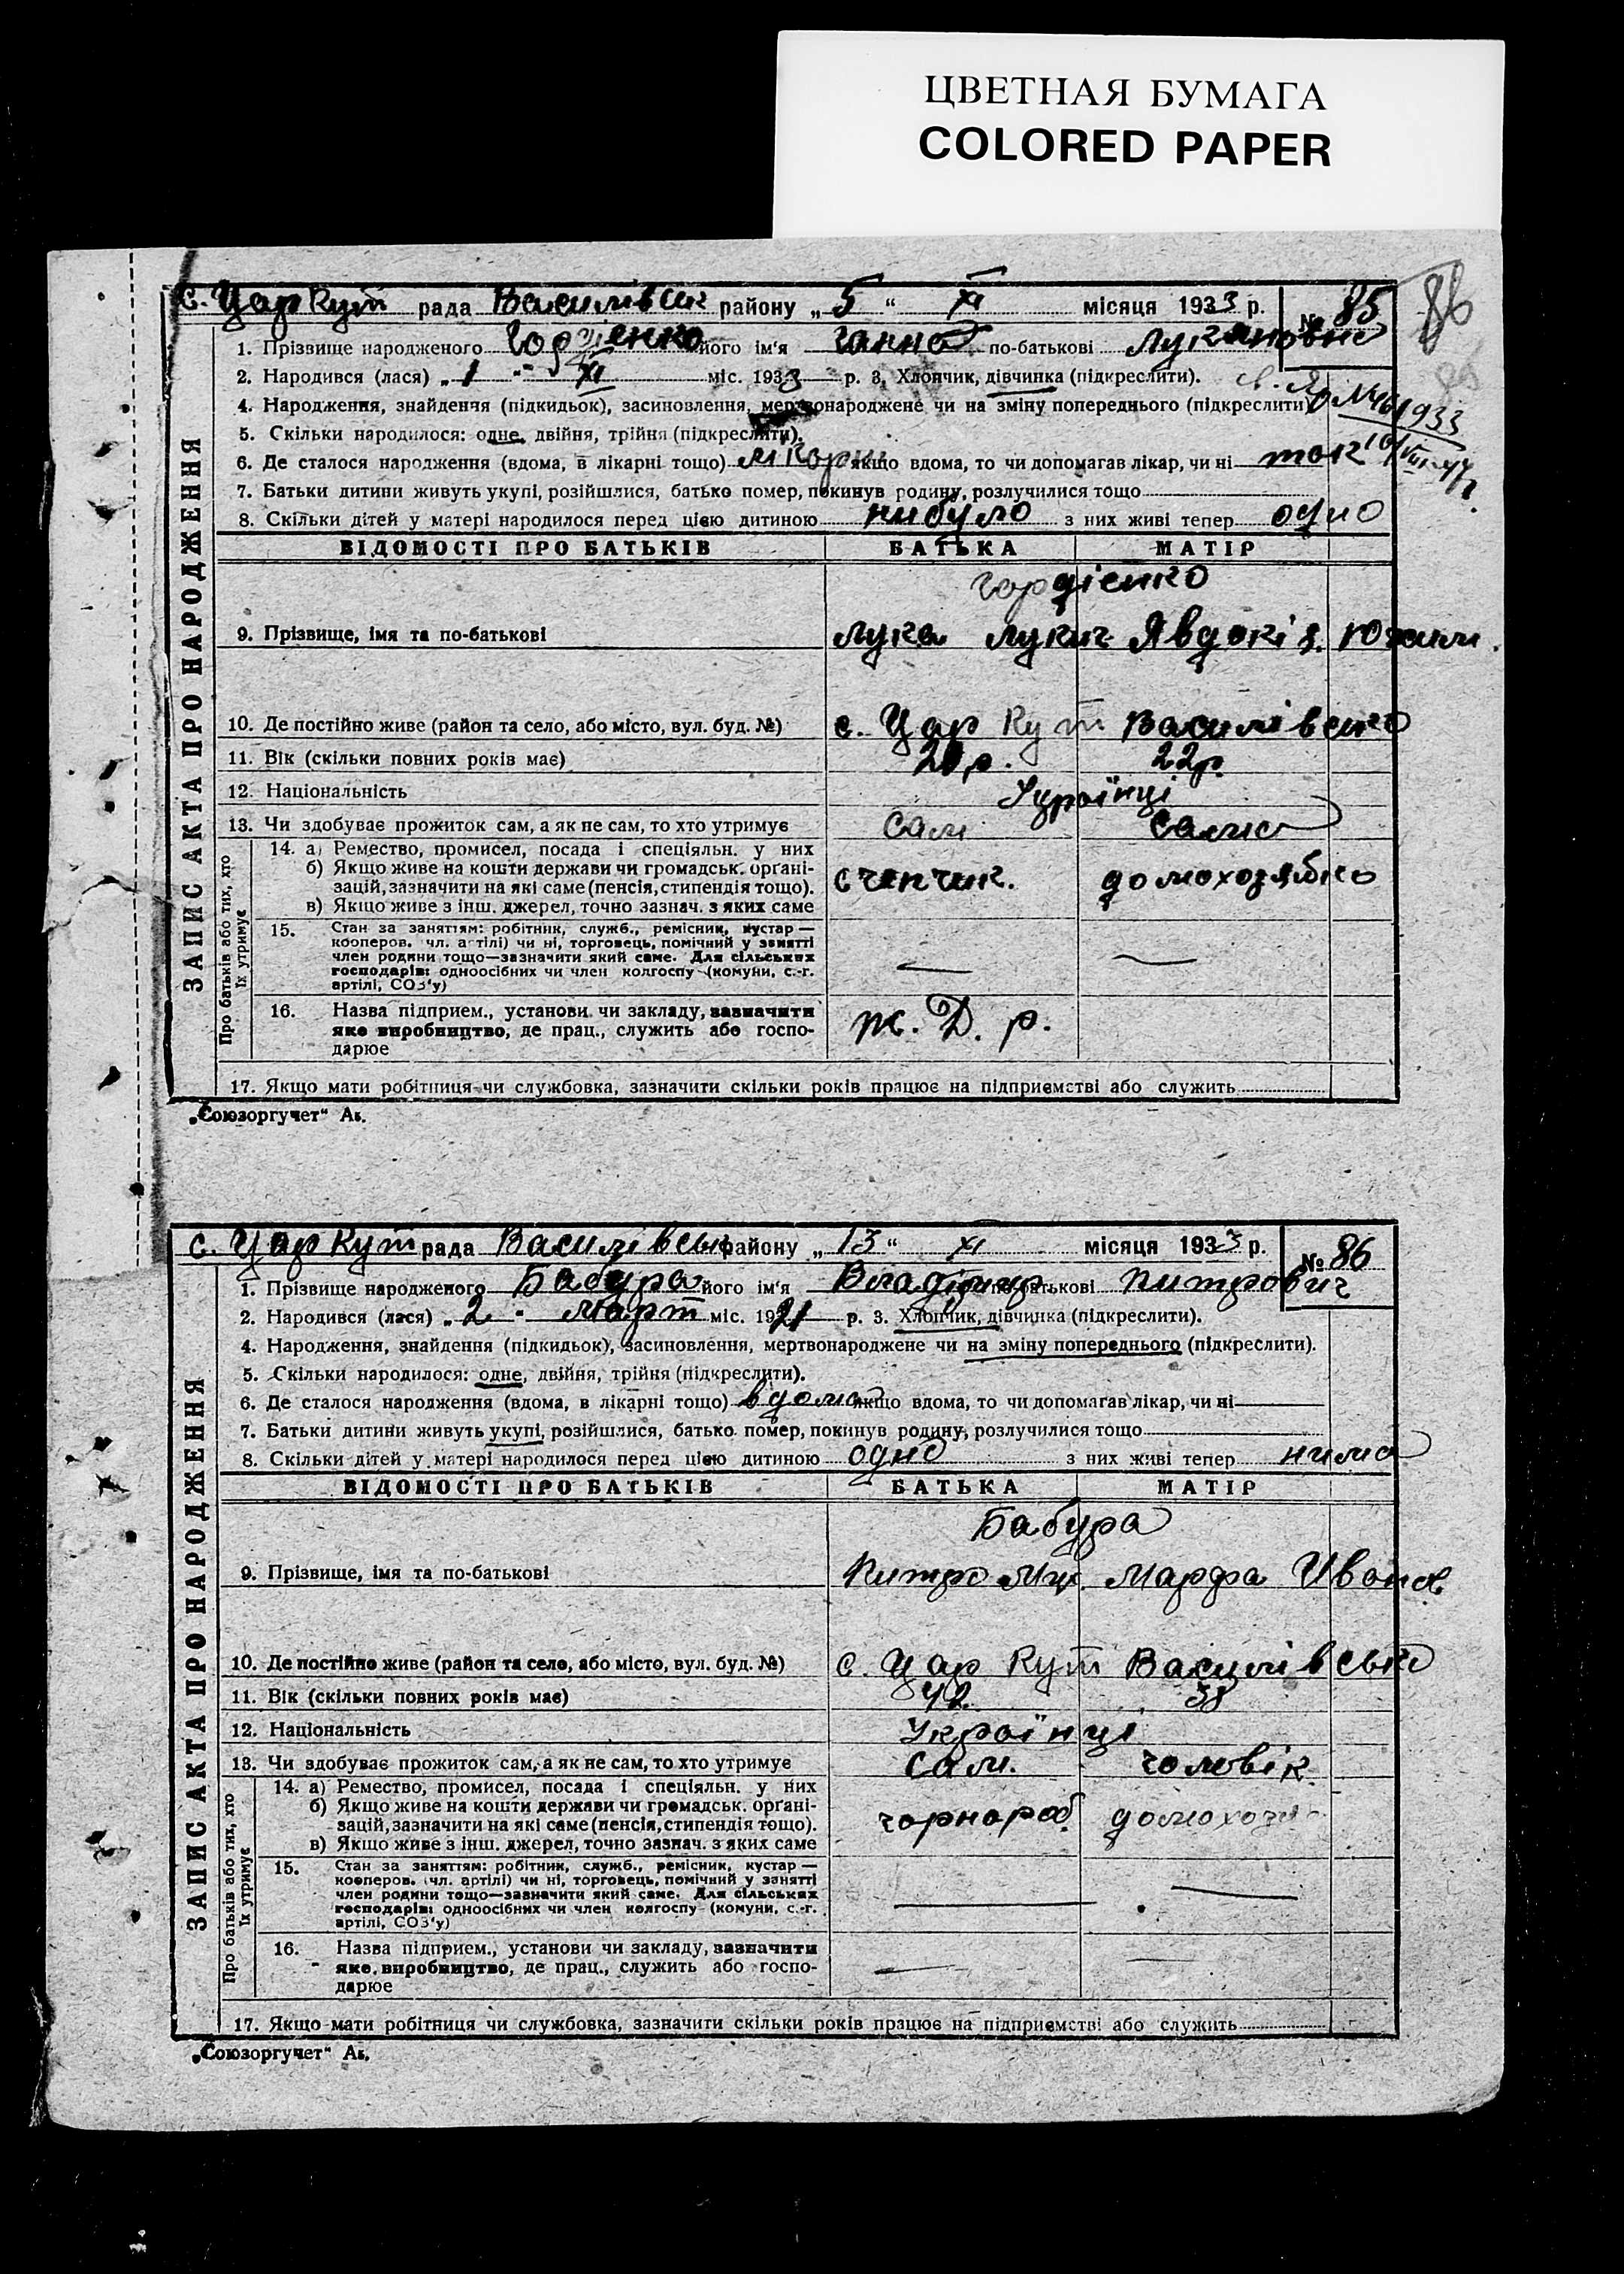 ЦВЕТНАЯ БУМАГА
COLORED PAPER
86
с. Цар Кут рада Василівськ району „ 5 “ XI місяця 1933 р. № 85
1. Прізвище народженого Гордіенко його ім'я Ганна по-батькові Лукяновна
2. Народився (лася) „ 1 " XI міс. 1933 р. 3. Хлопчик, дівчинка (підкреслити).
4. Народження, знайдення (підкидьок), засиновлення, мертвонароджене чи на зміну попереднього (підкреслити)
5. Скільки народилося: одне, двійня, трійня (підкреслити).
6. Де сталося народження (вдома, в лікарні тощо) лікарні якщо вдома, то чи допомагав лікар, чи ні так
7. Батьки дитини живуть укупі, розійшлися, батько помер, покинув родину, розлучилися тощо
8. Скільки дітей у матері народилося перед цією дитиною нибуло з них живі тепер одно
ЗАПИС АКТА ПРО НАРОДЖЕННЯ
ВІДОМОСТІ ПРО БАТЬКІВ БАТЬКА МАТІР
Гордіенко
9. Прізвище, імя та по-батькові Лука Лукич Явдокія
10. Де постійно живе (район та село, або місто, вул. буд. №) с. Цар Кут Василівсько
11. Вік (скільки повних років має) 22р.
12. Національність Українці
13. Чи здобуває прожиток сам, а як не сам, то хто утримує сам сама
Про батьків або тих, хто їх утримує
14. а) Ремество, промисел, посада і спеціяльн. у них
б) Якщо живе на кошти держави чи громадськ. органі-
зацій, зазначити на які саме (пенсія, стипендія тощо). счепчик. домохозяйко
в) Якщо живе з інш. джерел, точно зазнач. з яких саме
15. Стан за заняттям: робітник, служб., ремісник, кустар —
кооперов. (чл. артілі) чи ні, торговець, помічний у занятті
член родини тощо—зазначити який саме. Для сільських
господарів: одноосібних чи член колгоспу (комуни, с.-г.
артілі, СОЗ'у)
16. Назва підприєм., установи чи закладу, зазначити
яке виробництво, де прац., служить або госпо-
дарює ж. Д. р.
17. Якщо мати робітниця чи службовка, зазначити скільки років працює на підприємстві або служить
„Союзоргучет“
с. Цар Кут рада Василівськ району „ 13 “ XI місяця 1933 р. № 86
1. Прізвище народженого Бабура його ім'я Владімир по-батькові Питрович
2. Народився (лася) „ 2 " март міс. 1921 р. 3. Хлопчик, дівчинка (підкреслити).
4. Народження, знайдення (підкидьок), засиновлення, мертвонароджене чи на зміну попереднього (підкреслити).
5. Скільки народилося: одне, двійня, трійня (підкреслити).
6. Де сталося народження (вдома, в лікарні тощо) вдома якщо вдома, то чи допомагав лікар, чи ні
7. Батьки дитини живуть укупі, розійшлися, батько помер, покинув родину, розлучилися тощо
8. Скільки дітей у матері народилося перед цією дитиною одно з них живі тепер нима
ЗАПИС АКТА ПРО НАРОДЖЕННЯ
ВІДОМОСТІ ПРО БАТЬКІВ БАТЬКА МАТІР
Бабура
9. Прізвище, імя та по-батькові Питро Марфа Иванов
10. Де постійно живе (район та село, або місто, вул. буд. №) с. Цар Кут Василівсько
11. Вік (скільки повних років має) 42 38
12. Національність Українці
13. Чи здобуває прожиток сам, а як не сам, то хто утримує сам. чоловік.
Про батьків або тих, хто їх утримує
14. а) Ремество, промисел, посада і спеціяльн. у них
б) Якщо живе на кошти держави чи громадськ. органі-
зацій, зазначити на які саме (пенсія, стипендія тощо). чорнороб. домохозя
в) Якщо живе з інш. джерел, точно зазнач. з яких саме
15. Стан за заняттям: робітник, служб., ремісник, кустар —
кооперов. (чл. артілі) чи ні, торговець, помічний у занятті
член родини тощо—зазначити який саме. Для сільських
господарів: одноосібних чи член колгоспу (комуни, с.-г.
артілі, СОЗ'у)
16. Назва підприєм., установи чи закладу, зазначити
яке виробництво, де прац., служить або госпо-
дарює
17. Якщо мати робітниця чи службовка, зазначити скільки років працює на підприємстві або служить
„Союзоргучет“